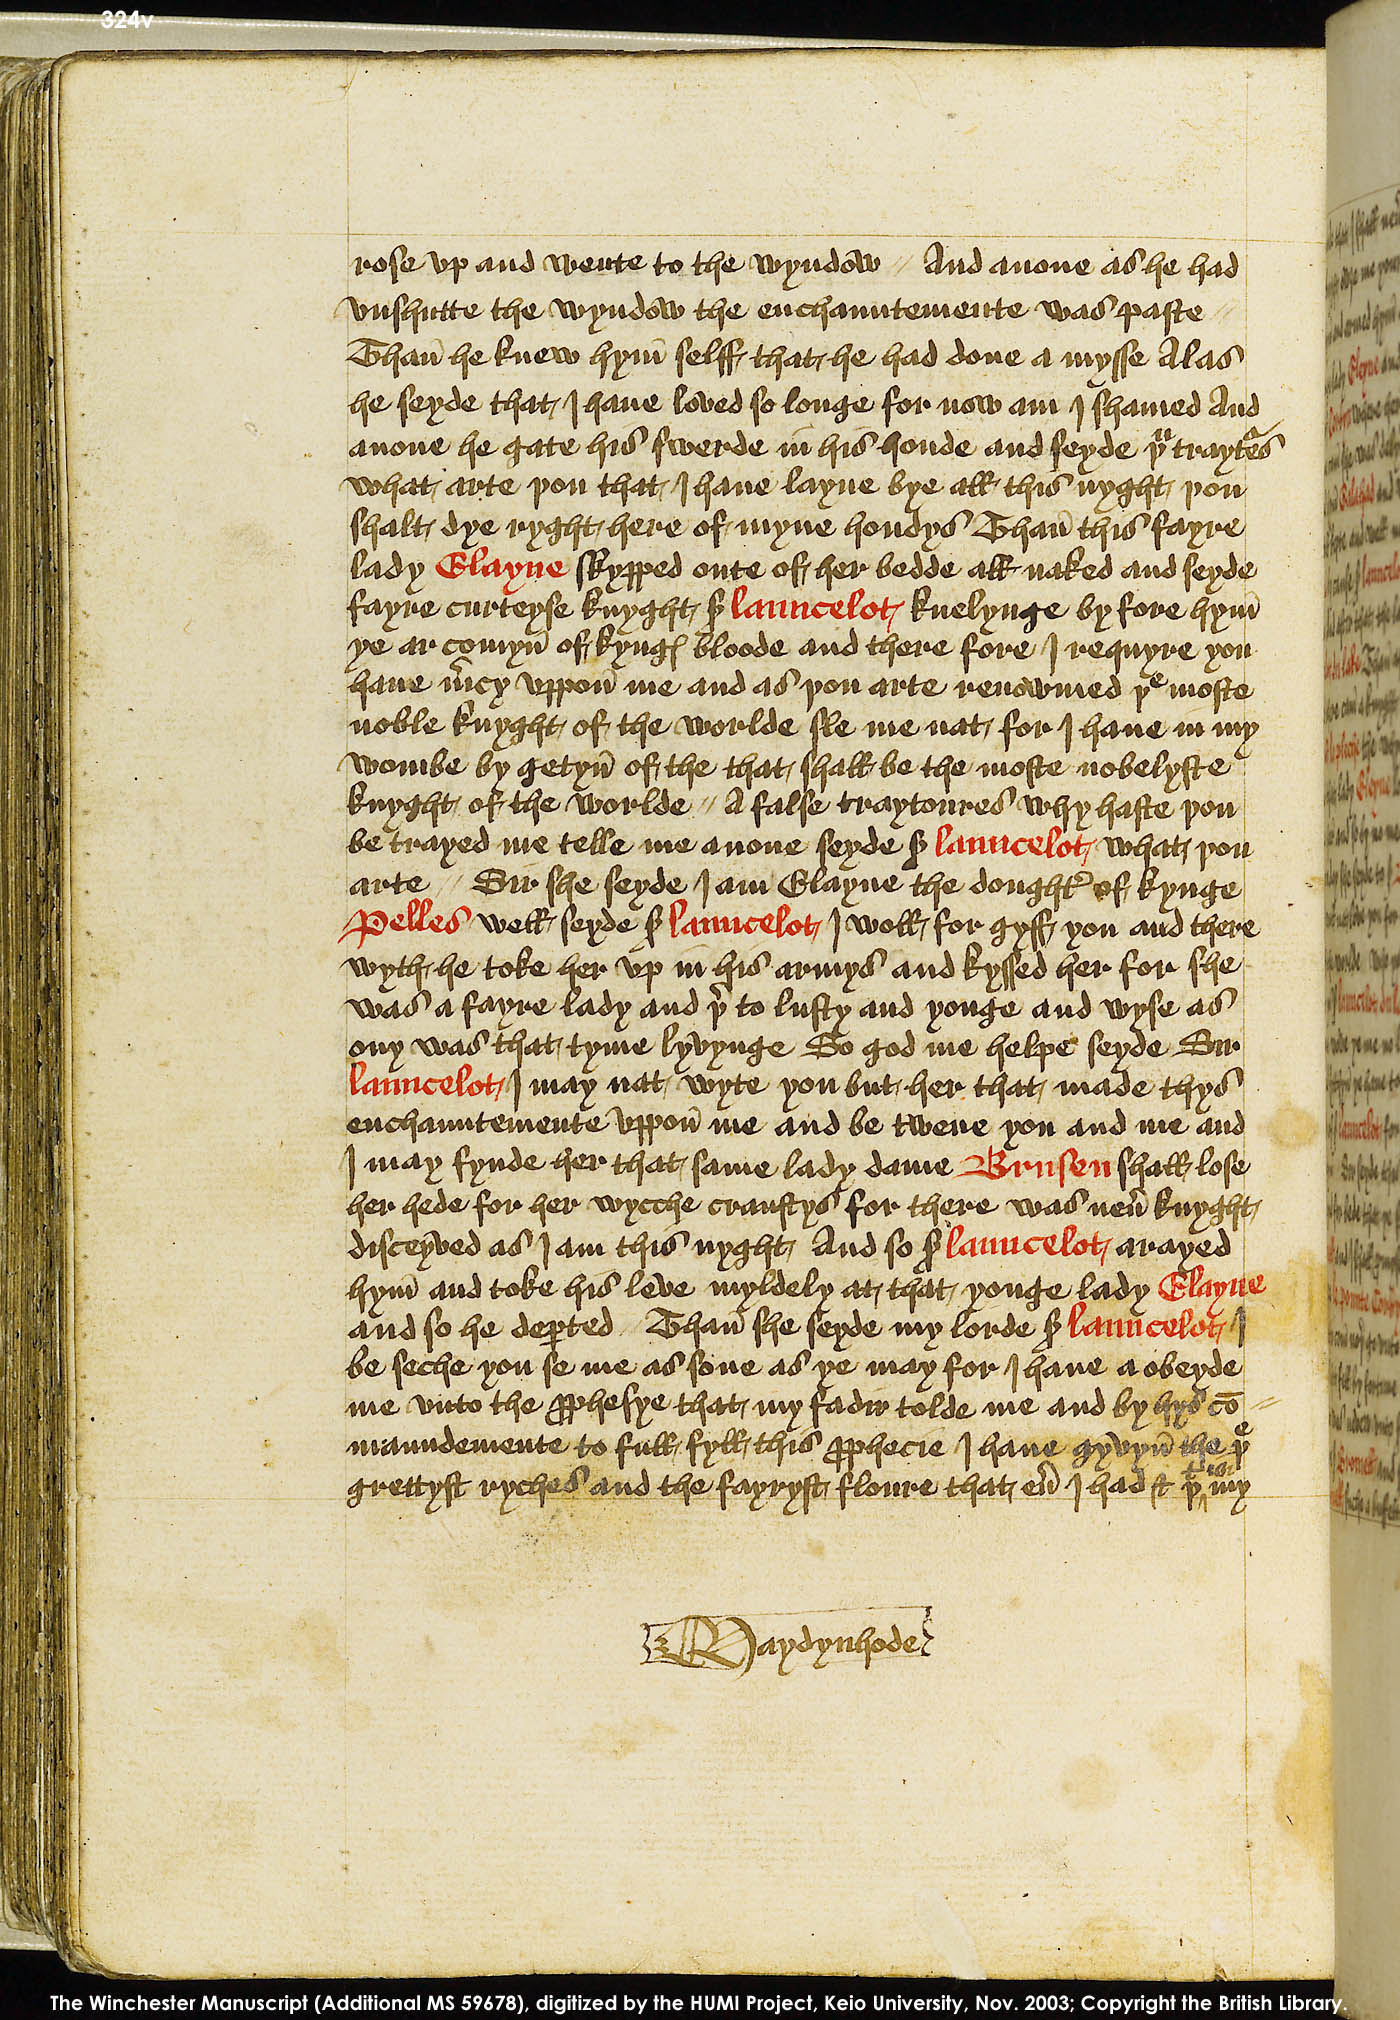 324v
rose vp and wente to the wyndow // And anone as he had
vnshutte the wyndow the enchauntemente was paste //
Than̄ he knew hym̄ selff that he had done a mysse Alas
he seyde that I haue loved so longe for now am I shamed And
anone he gate his swerde in his honde and seyde þu traytͬes
what arte þou that I haue layne bye all this nyght þou
shalt dye ryght here of myne hondys Than̄ this fayre
lady Elayne skypped oute of her bedde all naked and seyde
fayre curteyse knyght sͬ launcelot knelynge by fore hym̄
ye ar comyn̄ of kyngꝭ bloode and there fore I requyre you
haue mͬcy vppon̄ me and as þou arte renowmed þe moste
noble knyght of the worlde sle me nat for I haue in my
wombe by getyn̄ of the that shall be the moste nobelyste
knyght of the worlde // A false traytoures why haste þou
be trayed me telle me anone seyde sͬ launcelot what þou
arte // Sir she seyde I am Elayne the doughtͬ of kynge
Pelles well seyde sͬ launcelot I woll for gyff you and there
wyth he toke her vp in his armys and kyssed her for she
was a fayre lady and þͬ to lusty and yonge and wyse as
ony was that tyme lyvynge So god me helpe seyde Sir
launcelot I may nat wyte you but her that made thys
enchauntemente vppon̄ me and be twene you and me and
I may fynde her that same lady dame Brusen shall lose
her hede for her wycche crauftys for there was neu̾ knyght
disceyved as I am this nyght And so sͬ launcelot arayed
hym̄ and toke his leve myldely at that yonge lady Elayne
and so he deꝑted // Than̄ she seyde my lorde sͬ launcelot I
be seche you se me as sone as ye may for I haue a obeyde
me vnto the ꝓphesye that my fadir tolde me and by hys cō
maundemente to full fyll this ꝓphecie I haue gyvyn̄ the þe
grettyst ryches and the fayryst floure that eu̾ I had & þt ys my
Maydynhode
The Winchester Manuscript (Additional MS 59678), digitized by the HUMI Project, Keio University, Nov. 2003; Copyright the British Library.